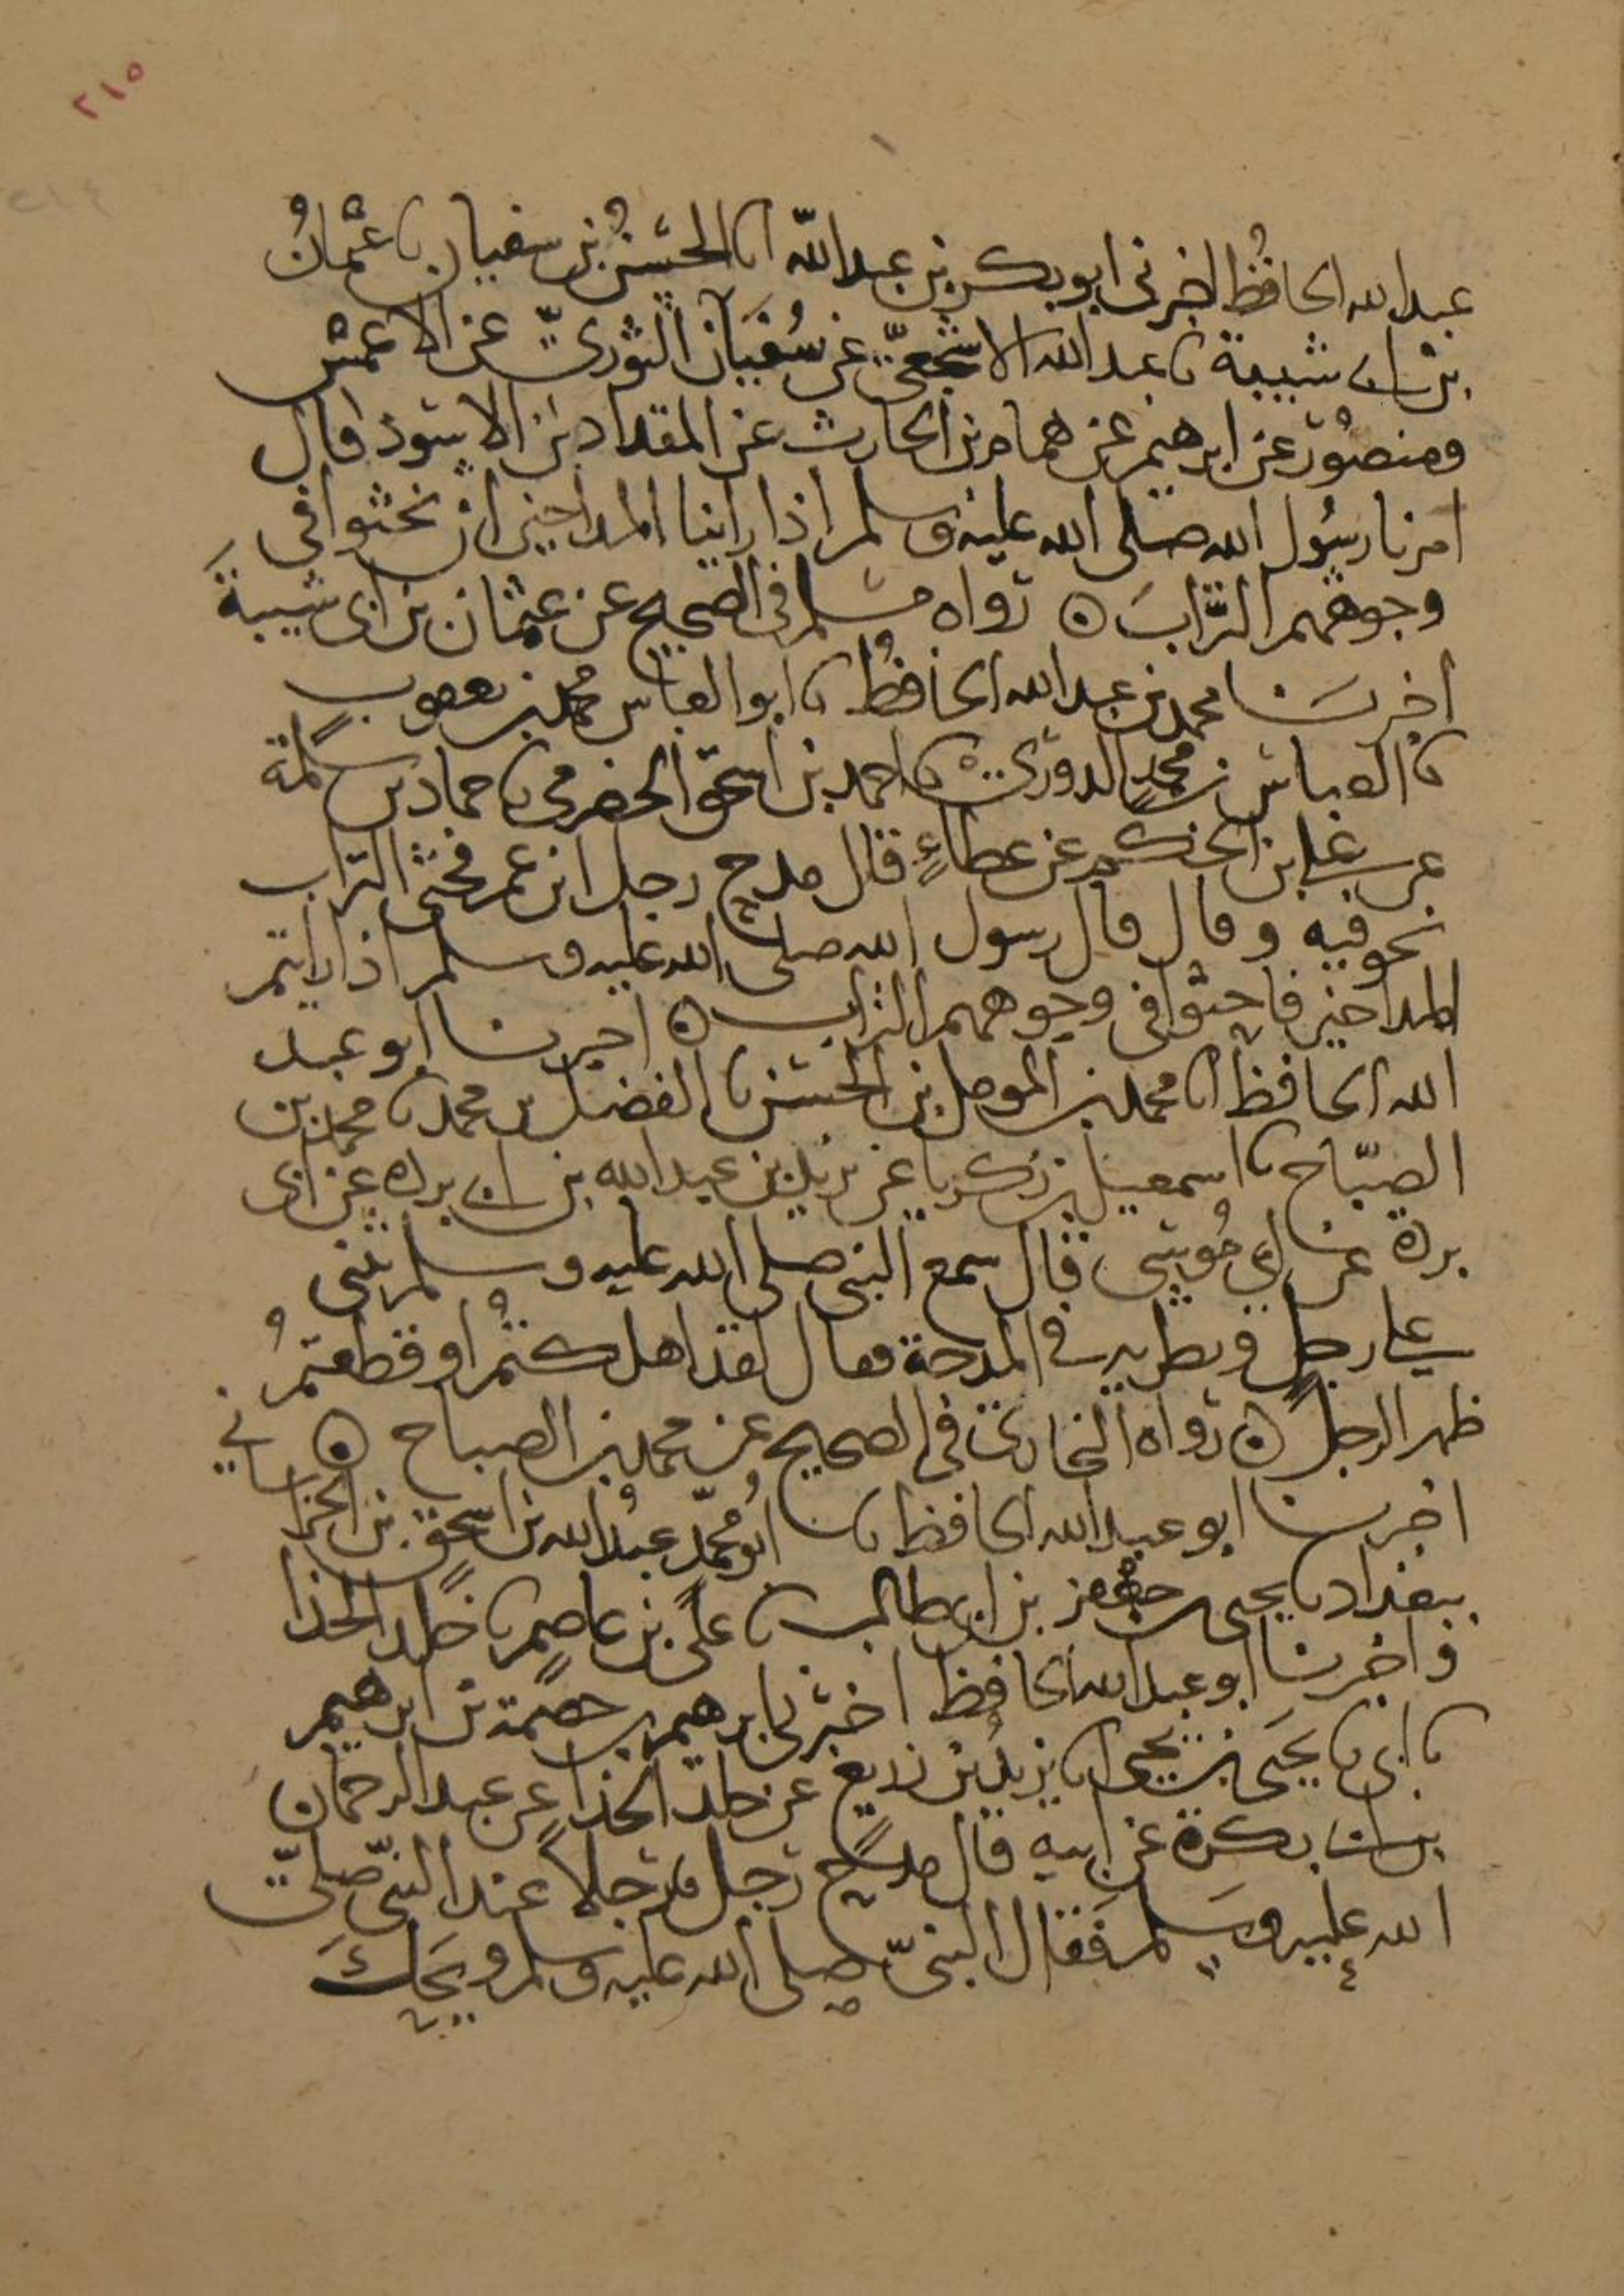 ٢١٥
عبد الله الحافظ اخبرني ابو بكر بن عبد الله انا الحسن بن سفيان نا عثمان
بن ابي شيبة نا عبد الله الاشجعي عن سفيان الثوري عن الاعمش
ومنصور عن ابرهيم عن همام بن الحارث عن المقداد بن الاسود قال
امرنا رسول الله صلى الله عليه وسلم اذا راينا المداحين ان نحثوا في
وجوههم التراب ه رواه مسلم في الصحيح عن عثمان بن ابي شيبة
اخبرنا محمد بن عبد الله الحافظ نا ابو العباس محمد بن يعقوب
نا العباس بن محمد الدوري نا احمد بن اسحق الحضرمي نا حماد بن سلمة
عن علي بن الحكم عن عطاء قال مدح رجل ابن عمر فحثى التراب
نحو فيه وقال قال رسول الله صلى الله عليه وسلم اذا رايتم
المداحين فاحثوا في وجوههم التراب ه اخبرنا ابو عبد
الله الحافظ انا محمد بن المومل بن الحسن نا الفضل بن محمد نا محمد بن
الصبّاح نا اسمعيل بن زكريا عن بريد بن عبد الله بن ابي بردة عن ابي
بردة عن ابي موسى قال سمع النبي صلى الله عليه وسلم رجلا يثني
علي رجل ويطريه في المدحة فقال لقد اهلكتم او قطعتم
ظهر الرجل ه رواه البخاري في الصحيح عن محمد بن الصباح ه
اخبرنا ابو عبد الله الحافظ نا ابو محمّد عبد الله بن اسحق بن الخراساني
ببغداد نا يحيى بن جعفر بن ابي طالب نا علي بن عاصم نا خلد الحذا
واخبرنا ابو عبد الله الحافظ اخبرني ابرهيم بن عصمة بن ابرهيم
نا ابي نا يحيى بن يحيى انا يزيد بن زريع عن خلد الحذا عن عبد الرحمان
بن ابي بكرة عن ابيه قال مدح رجل رجلا عند النبي صلى
الله عليه وسلم فقال النبيّ صلى الله عليه وسلم ويحك